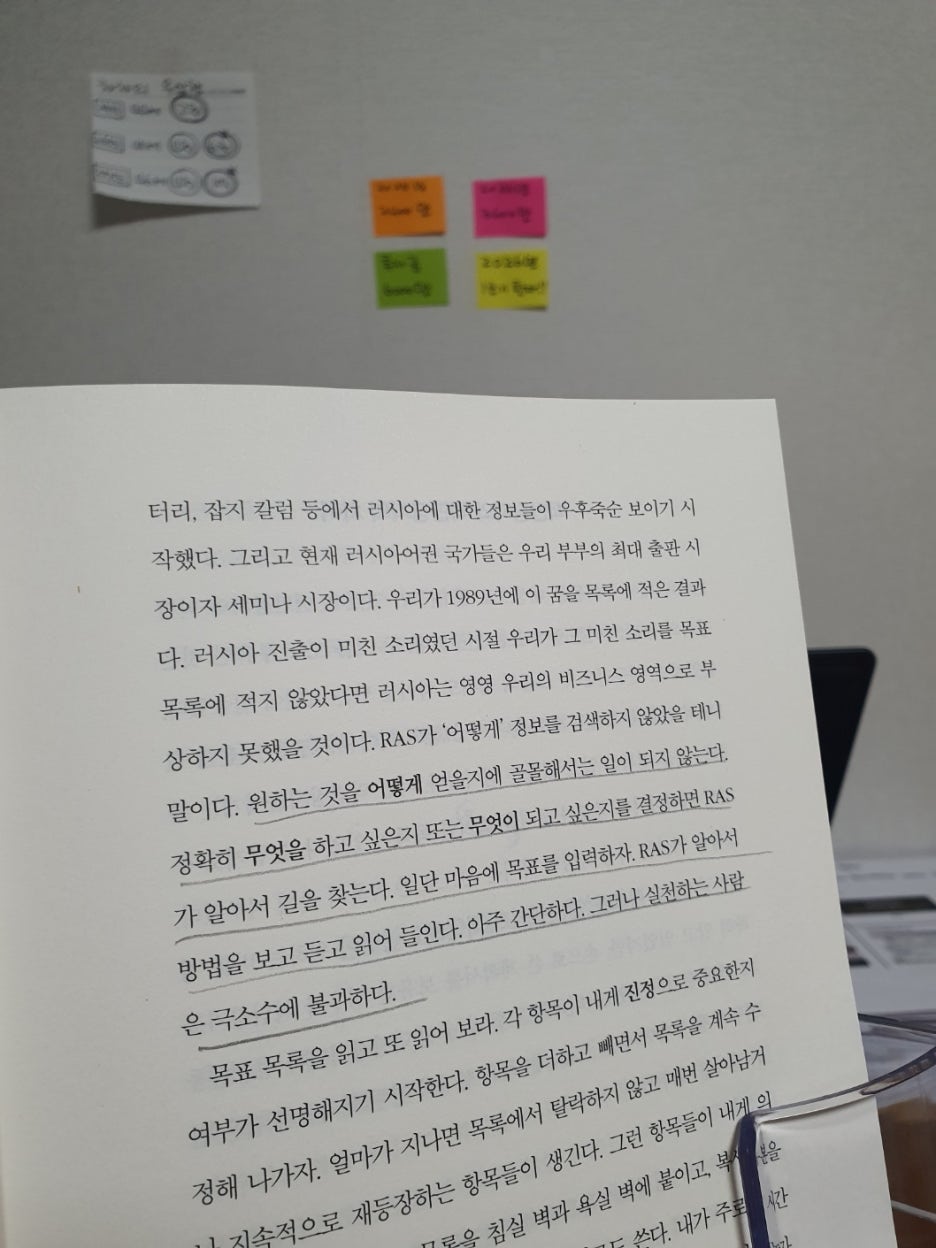 2026년
터리, 잡지 칼럼 등에서 러시아에 대한 정보들이 우후죽순 보이기 시
작했다. 그리고 현재 러시아어권 국가들은 우리 부부의 최대 출판 시
장이자 세미나 시장이다. 우리가 1989년에 이 꿈을 목록에 적은 결과
다. 러시아 진출이 미친 소리였던 시절 우리가 그 미친 소리를 목표
목록에 적지 않았다면 러시아는 영영 우리의 비즈니스 영역으로 부
상하지 못했을 것이다. RAS가 ‘어떻게’ 정보를 검색하지 않았을 테니
말이다. 원하는 것을 어떻게 얻을지에 골몰해서는 일이 되지 않는다.
정확히 무엇을 하고 싶은지 또는 무엇이 되고 싶은지를 결정하면 RAS
가 알아서 길을 찾는다. 일단 마음에 목표를 입력하자. RAS가 알아서
방법을 보고 듣고 읽어 들인다. 아주 간단하다. 그러나 실천하는 사람
은 극소수에 불과하다.
목표 목록을 읽고 또 읽어 보라. 각 항목이 내게 진정으로 중요한지
여부가 선명해지기 시작한다. 항목을 더하고 빼면서 목록을 계속 수
정해 나가자. 얼마가 지나면 목록에서 탈락하지 않고 매번 살아남거
나 지속적으로 재등장하는 항목들이 생긴다. 그런 항목들이 내게 의
목록을 침실 벽과 욕실 벽에 붙이고, 복사본을
쓴다. 내가 주로 시간